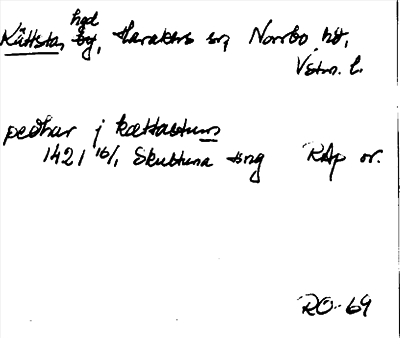 hgd
Kättsta, by, Haraker sn, Norrbo hd,
Vstm. l.
pedhar j kættastum
1421 16/1 Skultuna tng RAp or.
RO-69